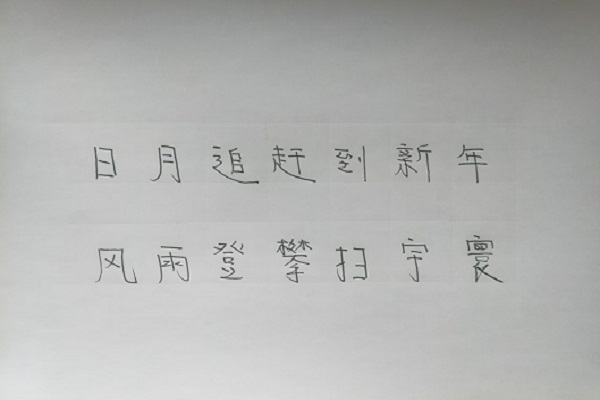 日月追赶到新年
风雨登攀扫宇寰